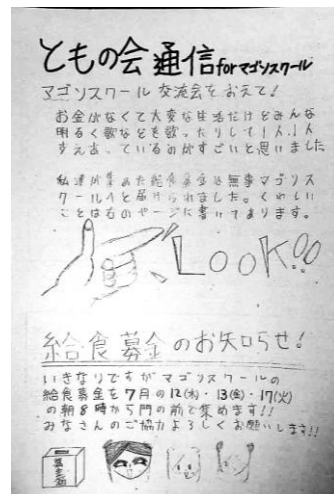 ともの会通信 for マゴソスクール
マゴソスクール 交流会をおえて!
お金がなくて大変な生活だけどみんな
明るく歌なども歌ったりして1人1人
支え合っているのがすごいと思いました
私達が集めた給食募金は無事マゴソス
クールへと届けられました。くわしい
ことは右のページに書いてあります。
LOOK!!
給食募金のお知らせ!
いきなりですがマゴソスクールの
給食募金を7月の12(木)・13(金)・17(火)
の朝8時から門の前で集めます!!
みなさんのご協力よろしくお願いします!!
募金箱